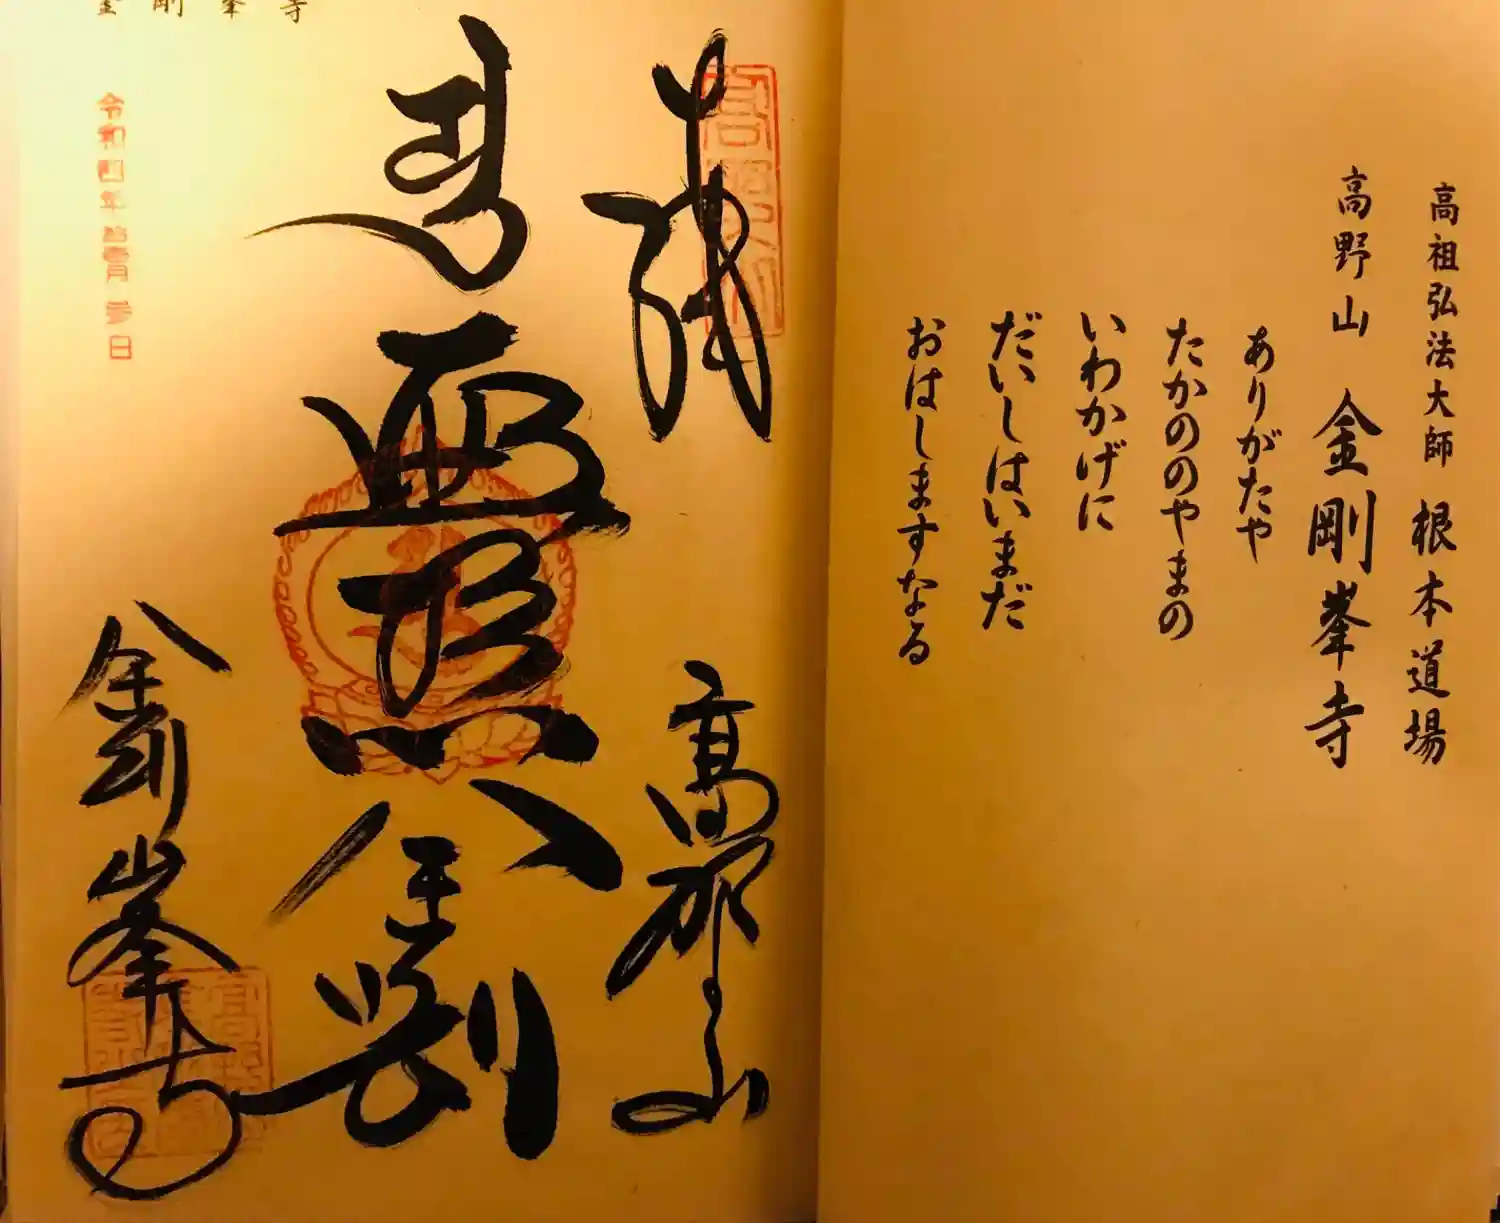 高祖弘法大師 根本道場
高野山 金剛峯寺
ありがたや
たかののやまの
いわかげに
だいしはいまだ
おはしますなる
奉
高野山
遍照金剛
令和四年拾壹月参日
金剛峯寺
金剛峯寺